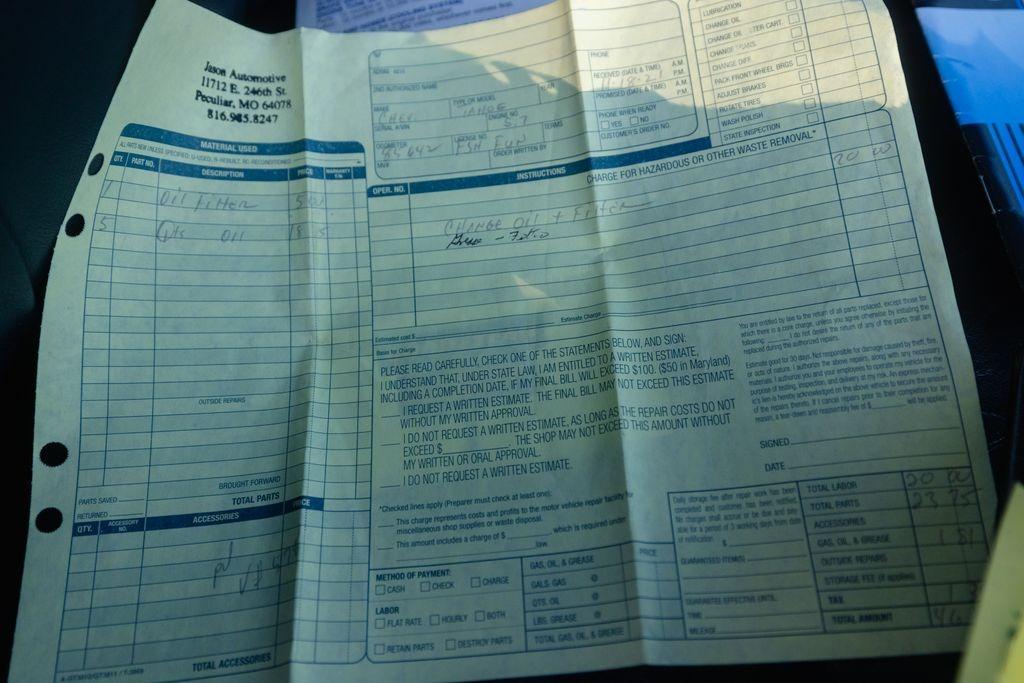 Jason Automotive
11712 E. 246th St.
Peculiar, MO 64078
816.985.8247
MATERIAL USED
QTY. PART NO. DESCRIPTION PRICE WARRANTY
1 Oil Filter
5 Qts Oil
OUTSIDE REPAIRS
BROUGHT FORWARD
PARTS SAVED
TOTAL PARTS
RETURNED
QTY. ACCESSORY NO. ACCESSORIES PRICE
TOTAL ACCESSORIES
PHONE
2ND AUTHORIZED NAME
RECEIVED (DATE & TIME) A.M. P.M.
PROMISED (DATE & TIME) A.M. P.M.
MAKE TYPE OR MODEL YEAR
CHEV TAHOE
SERIAL #/VIN ENGINE NO. 5.7
PHONE WHEN READY
YES NO
ODOMETER LICENSE NO. TERMS
CUSTOMER'S ORDER NO.
ORDER WRITTEN BY
LUBRICATION
CHANGE OIL
CHANGE OIL
CHANGE TRANS.
CHANGE DIFF.
PACK FRONT WHEEL BRGS
ADJUST BRAKES
ROTATE TIRES
WASH POLISH
STATE INSPECTION
OPER. NO. INSTRUCTIONS CHARGE FOR HAZARDOUS OR OTHER WASTE REMOVAL*
20 00
CHANGE OIL + Filter
Estimated cost $ Estimate Charge
Basis for Charge
PLEASE READ CAREFULLY, CHECK ONE OF THE STATEMENTS BELOW, AND SIGN:
I UNDERSTAND THAT, UNDER STATE LAW, I AM ENTITLED TO A WRITTEN ESTIMATE,
INCLUDING A COMPLETION DATE, IF MY FINAL BILL WILL EXCEED $100. ($50 in Maryland)
I REQUEST A WRITTEN ESTIMATE. THE FINAL BILL MAY NOT EXCEED THIS ESTIMATE
WITHOUT MY WRITTEN APPROVAL.
I DO NOT REQUEST A WRITTEN ESTIMATE, AS LONG AS THE REPAIR COSTS DO NOT
EXCEED $ THE SHOP MAY NOT EXCEED THIS AMOUNT WITHOUT
MY WRITTEN OR ORAL APPROVAL.
I DO NOT REQUEST A WRITTEN ESTIMATE.
You are entitled by law to the return of all parts replaced, except those for
which there is a core charge, unless you agree otherwise by initialing the
following: I do not desire the return of any of the parts that are
replaced during the authorized repairs.
Estimate good for 30 days. Not responsible for damage caused by theft, fire,
or acts of nature. I authorize the above repairs, along with any necessary
materials. I authorize you and your employees to operate my vehicle for the
purpose of testing, inspection, and delivery at my risk. An express mechan-
ic's lien is hereby acknowledged on the above vehicle to secure the amount
of the repairs thereto. If I cancel repairs prior to their completion for any
reason, a tear-down and reassembly fee of $ will be applied.
SIGNED
DATE
*Checked lines apply (Preparer must check at least one):
This charge represents costs and profits to the motor vehicle repair facility for
miscellaneous shop supplies or waste disposal.
This amount includes a charge of $ which is required under
law.
METHOD OF PAYMENT:
CASH CHECK CHARGE
LABOR
FLAT RATE HOURLY BOTH
RETAIN PARTS DESTROY PARTS
GAS, OIL, & GREASE PRICE
GALS. GAS @
QTS. OIL @
LBS. GREASE @
TOTAL GAS, OIL, & GREASE
Daily storage fee after repair work has been
completed and customer has been notified.
No charges shall accrue or be due and pay-
able for a period of 3 working days from date
of notification. $
GUARANTEED ITEM(S)
GUARANTEE EFFECTIVE UNTIL:
TIME
MILEAGE
TOTAL LABOR 20 00
TOTAL PARTS 23 75
ACCESSORIES
GAS, OIL, & GREASE
OUTSIDE REPAIRS
STORAGE FEE (if applies)
TAX
TOTAL AMOUNT